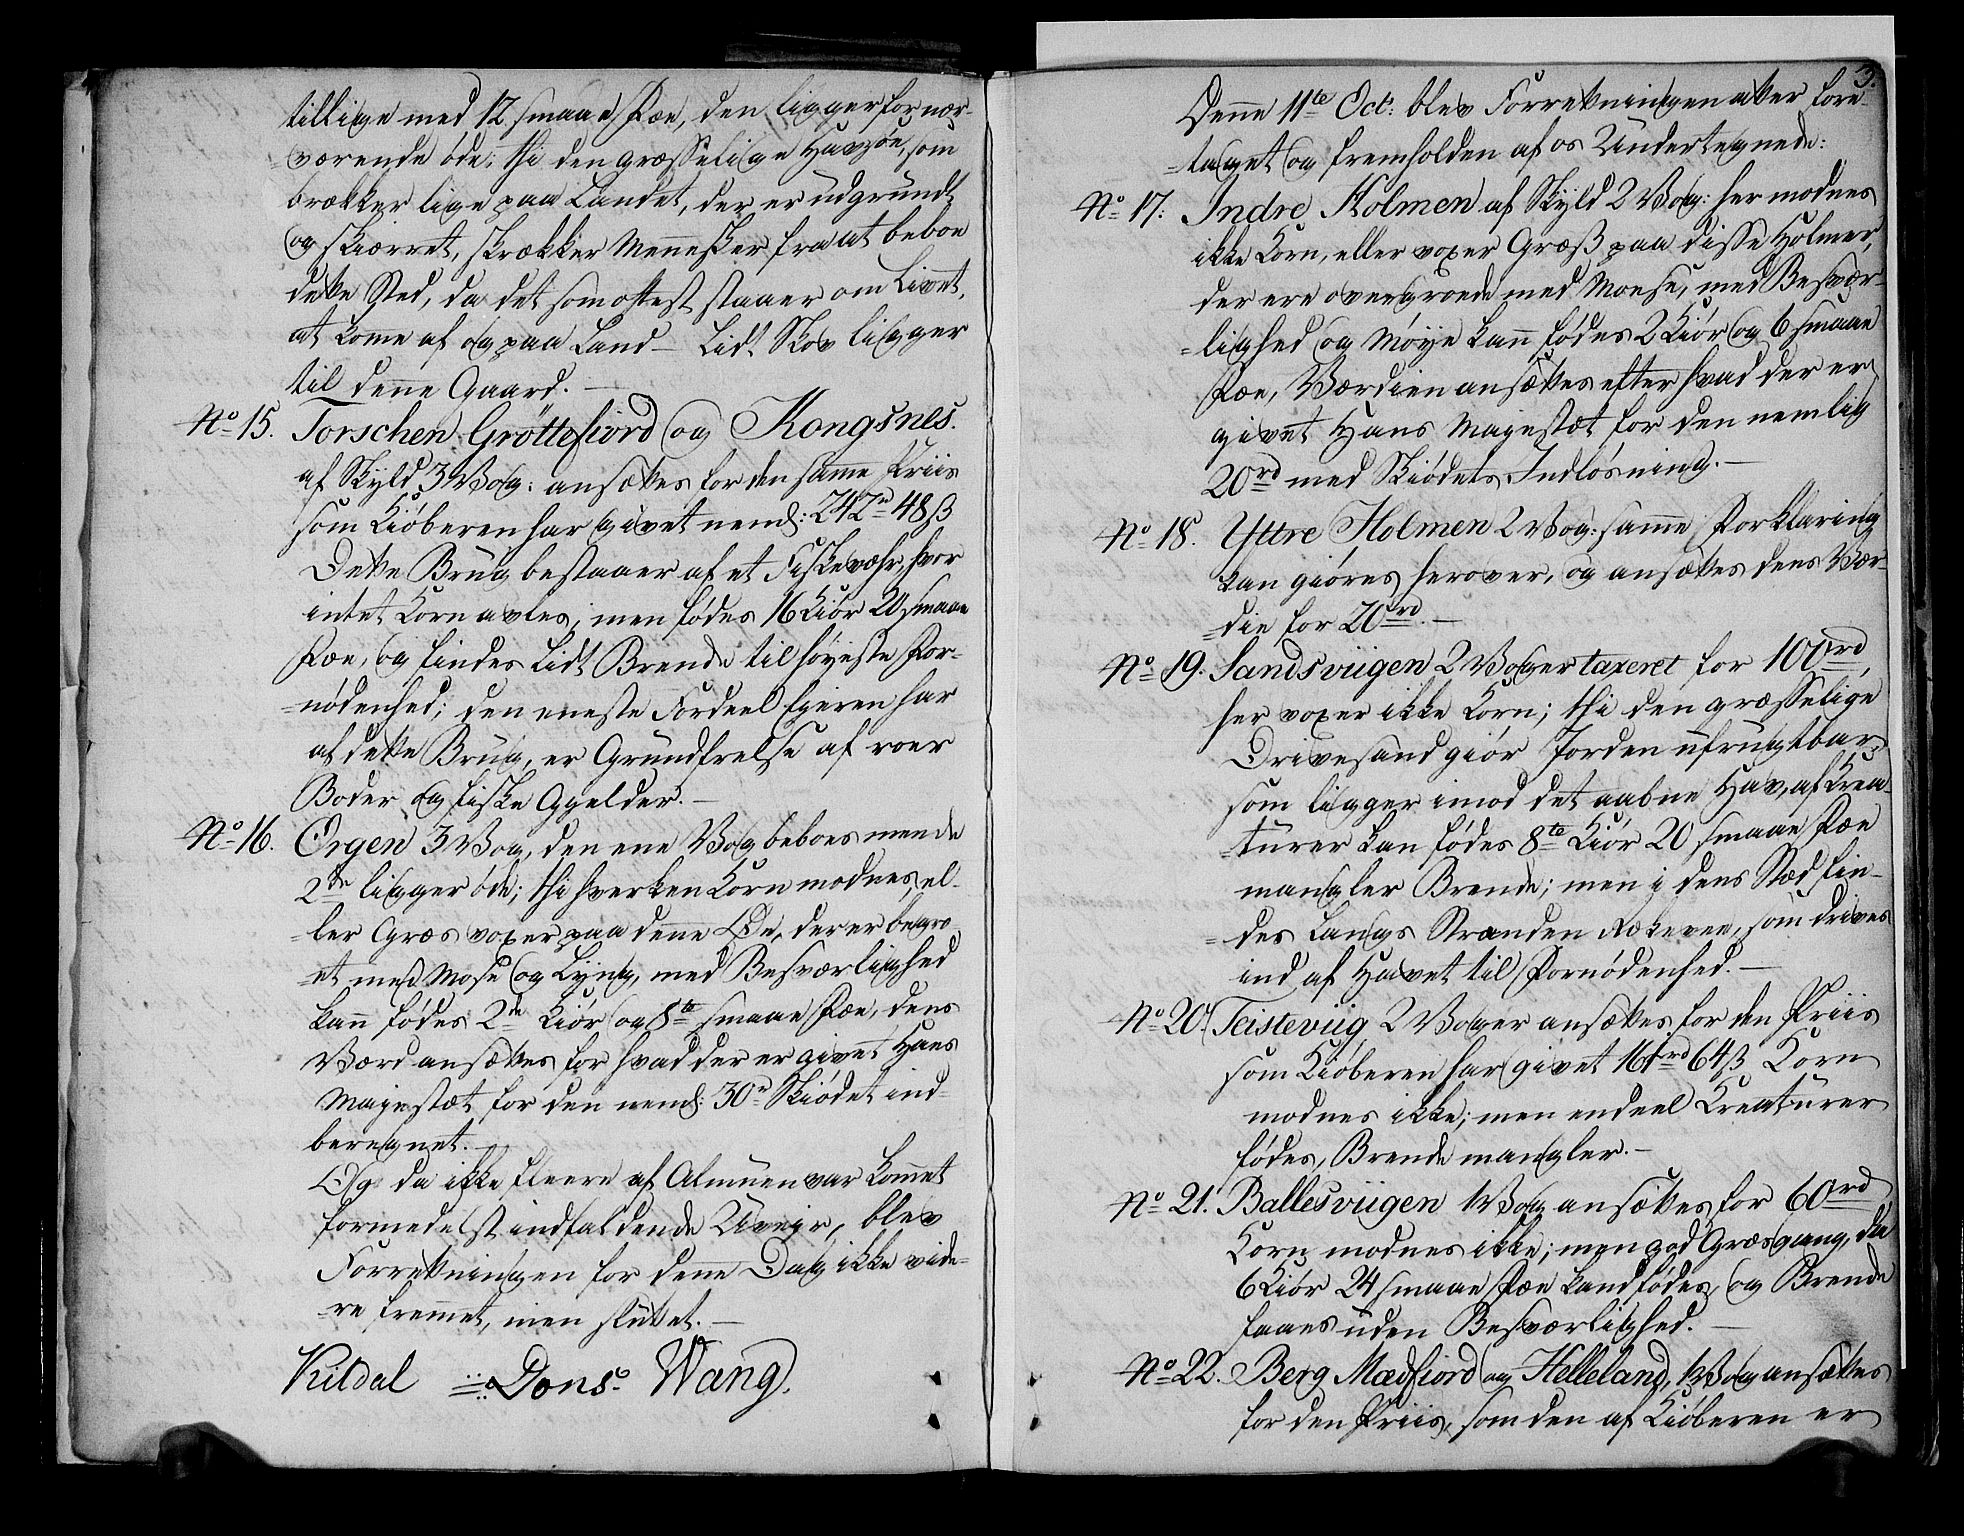 tillige med 12 smaae Fæe, den ligger for nær-
=værende øde; thi den græsselige Havsøe, som
brækker lige paa Landet, der er udgrundt
og skiærret, skrækker Mennesker fra at beboe
dette Sted, da det som oftest staaer om Livet,
at kome af og paa Land – Lidt Skov ligger
til denne Gaard. –
No 15. Torschen Gröttefiord og Kongsnes.
af Skyld 3 Vog: ansættes for den samme Priis
som Kiøberen har givet neml: 242rd 48ß
Dette Brug bestaaer af et Fiskevæhr, hvor
intet Korn avles, men fødes 16 Kiør 20 smaae
Fæe, og findes lidt Brende til høyeste For-
=nødenhed; den eneste Fordeel Eieren har
af dette Brug, er Grundfrelse af roer
Boder og fiske Gjelder. –
No 16. Orgen 3 Vog, den ene Vog beboes men de
2de ligger øde; thi hverken Korn modnes, el-
=ler Græs voxer paa denne Øe, der er begro
=et med Mose og Lyng, med Besværlighed
kan fødes 2de Kiør og 8te smaae Fæe, dens
Værd ansættes for hvad der er givet Hans
Majestæt for den neml: 30rd Skiødet ind-
beregnet. –
Og da ikke fleere af Almuen var komet
formedelst indfaldende Uveir, blev
Forretningen for denne Dag ikke vide-
=re fremmet, men sluttet. –
Kildal Dons. Wang.
3.
Denne 11te Oct: blev Forretningen atter fore-
=taget og fremholden af os Undertegnede:
No 17. Indre Holmen af Skyld 2 Vog: her modnes
ikke Korn, eller voxer Græß paa disse Holmer,
der ere overgroede med Moese, med Besvær-
=lighed og Møye kan fødes 2 Kiør og 6 smaae
Fæe, Værdien ansættes efter hvad der er
givet Hans Majestæt for den nemlig
20rd med Skiødets Indløsning. –
No 18. Yttre Holmen 2 Vog: samme Forklaring
kan giøres herover, og ansættes dens Vær-
=die for 20rd. –
No 19. Sandsviigen 2 Voger taxeret for 100rd,
her voxer ikke Korn; thi den græsselige
Drivesand giør Jorden ufrugtbar,
som ligger imod det aabne Hav, af Krea-
=turer kan fødes 8te Kiør 20 smaae Fæe
mangler Brende; men i dens Sted fin-
=des langs Stranden Rekevee, som drives
ind af Havet til Fornødenhed. –
No 20. Teisteviig 2 Voger ansættes for den Priis
som Kiøberen har givet 161rd 64ß Korn
modnes ikke; men endeel Creaturer
fødes, Brende mangler. –
No 21. Ballesviigen 1 Vog ansættes for 60rd
Korn modnes ikke; men god Græsgang, da
6 Kiør 24 smaae Fæe kand fødes, og Brende
faaes uden Besværlighed. –
No 22. Berg Mædfiord og Helleland, 1 Vog ansættes
for den Priis, som den af Kiøberen er